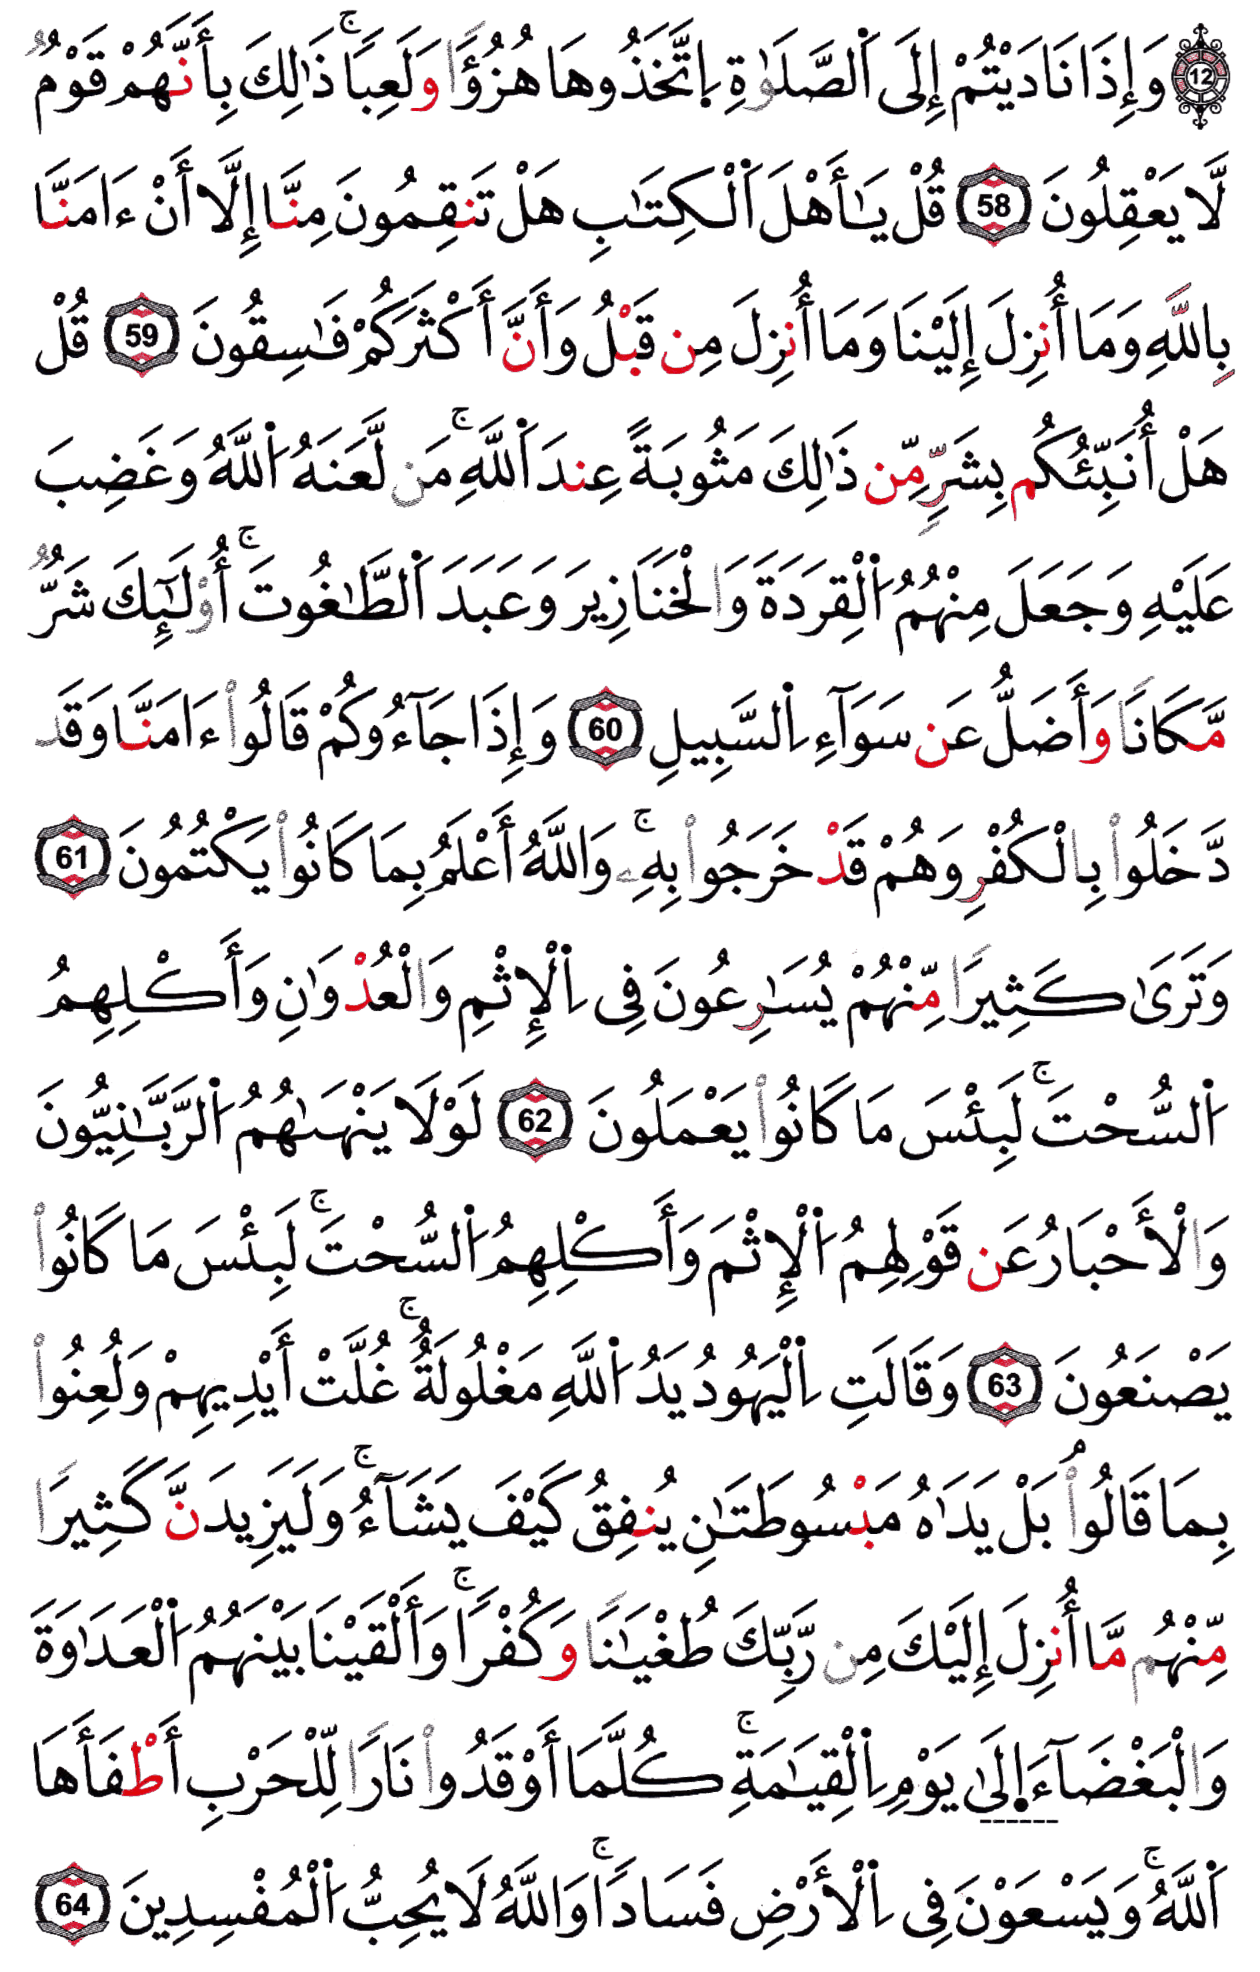 12 وَإِذَا نَادَيْتُمْ إِلَى اَ۬لصَّلَوٰةِ اِ۪تَّخَذُوهَا هُزُؤًا وَلَعِبًاۚ ذَٰلِكَ بِأَنَّهُمْ قَوْمٌ
لَّا يَعْقِلُونَ 58 قُلْ يَٰأَهْلَ اَ۬لْكِتَٰبِ هَلْ تَنقِمُونَ مِنَّا إِلَّا أَنْ ءَامَنَّا
بِاللَّهِ وَمَا أُنزِلَ إِلَيْنَا وَمَا أُنزِلَ مِن قَبْلُ وَأَنَّ أَكْثَرَكُمْ فَٰسِقُونَ 59 قُلْ
هَلْ أُنَبِّئُكُم بِشَرٍّ مِّن ذَٰلِكَ مَثُوبَةً عِندَ اَ۬للَّهِۚ مَن لَّعَنَهُ اُ۬للَّهُ وَغَضِبَ
عَلَيْهِ وَجَعَلَ مِنْهُمُ اُ۬لْقِرَدَةَ وَالْخَنَازِيرَ وَعَبَدَ اَ۬لطَّٰغُوتَۚ أُوْلَٰٓئِكَ شَرٌّ
مَّكَانًا وَأَضَلُّ عَن سَوَآءِ اِ۬لسَّبِيلِ 60 وَإِذَا جَآءُوكُمْ قَالُواْ ءَامَنَّا وَقَد
دَّخَلُواْ بِالْكُفْرِ وَهُمْ قَدْ خَرَجُواْ بِهِۦۚ وَاللَّهُ أَعْلَمُ بِمَا كَانُواْ يَكْتُمُونَ 61
وَتَرَىٰ كَثِيرًا مِّنْهُمْ يُسَٰرِعُونَ فِى اِ۬لْإِثْمِ وَالْعُدْوَٰنِ وَأَكْلِهِمُ
اُ۬لسُّحْتَۚ لَبِئْسَ مَا كَانُواْ يَعْمَلُونَ 62 لَوْلَا يَنْهَىٰهُمُ اُ۬لرَّبَّٰنِيُّونَ
وَالْأَحْبَارُ عَن قَوْلِهِمُ اُ۬لْإِثْمَ وَأَكْلِهِمُ اُ۬لسُّحْتَۚ لَبِئْسَ مَا كَانُواْ
يَصْنَعُونَ 63 وَقَالَتِ اِ۬لْيَهُودُ يَدُ اُ۬للَّهِ مَغْلُولَةٌۚ غُلَّتْ أَيْدِيهِمْ وَلُعِنُواْ
بِمَا قَالُواْۘ بَلْ يَدَٰهُ مَبْسُوطَتَٰنِ يُنفِقُ كَيْفَ يَشَآءُۚ وَلَيَزِيدَنَّ كَثِيرًا
مِّنْهُم مَّا أُنزِلَ إِلَيْكَ مِن رَّبِّكَ طُغْيَٰنًا وَكُفْرًاۚ وَأَلْقَيْنَا بَيْنَهُمُ اُ۬لْعَدَٰوَةَ
وَالْبَغْضَآءَ اِ۪لَىٰ يَوْمِ اِ۬لْقِيَٰمَةِۚ كُلَّمَا أَوْقَدُواْ نَارًا لِّلْحَرْبِ أَطْفَأَهَا
اَ۬للَّهُۚ وَيَسْعَوْنَ فِى اِ۬لْأَرْضِ فَسَادًاۚ وَاللَّهُ لَا يُحِبُّ اُ۬لْمُفْسِدِينَ 64